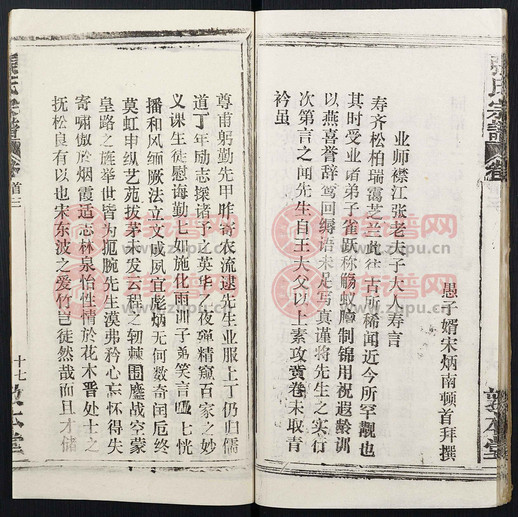 业师襟江张老夫子大人寿言
愚子婿宋炳南顿首拜撰
寿齐松柏瑞霭芝兰此往古所稀闻近今所罕觏也
其时受业诸弟子雀跃称觞蚁聚制锦用祝遐龄训
以燕喜誉辞驾回缛语未足写真谨将先生之实行
次第言之闻先生自王大父以上素攻黄卷未取青
衿虽
尊甫躬勤先甲昨寄衣流逮先生业服上丁仍归儒
道丁年励志探诸子之英华乙夜殚精窥百家之妙
义课生徒慰诲勤七如施化雨训子弟笑言哑七恍
播和风缅厥法立文成夙宜彪炳无何数奇闰卮终
莫虹申纵艺苑拔茅未发云程之轫棘围鏖战空蒙
皇路之旌举世皆为扼腕先生漠弗矜心忘怀得失
寄啸傲於烟霞适志林泉怡性情於花木晋处士之
抚松良有以也宋东波之爱竹岂徒然哉而且才储
张氏宗谱 卷首三
十七 敦本堂
张氏宗谱 卷
敦本堂
族谱网
www.zupu.cn